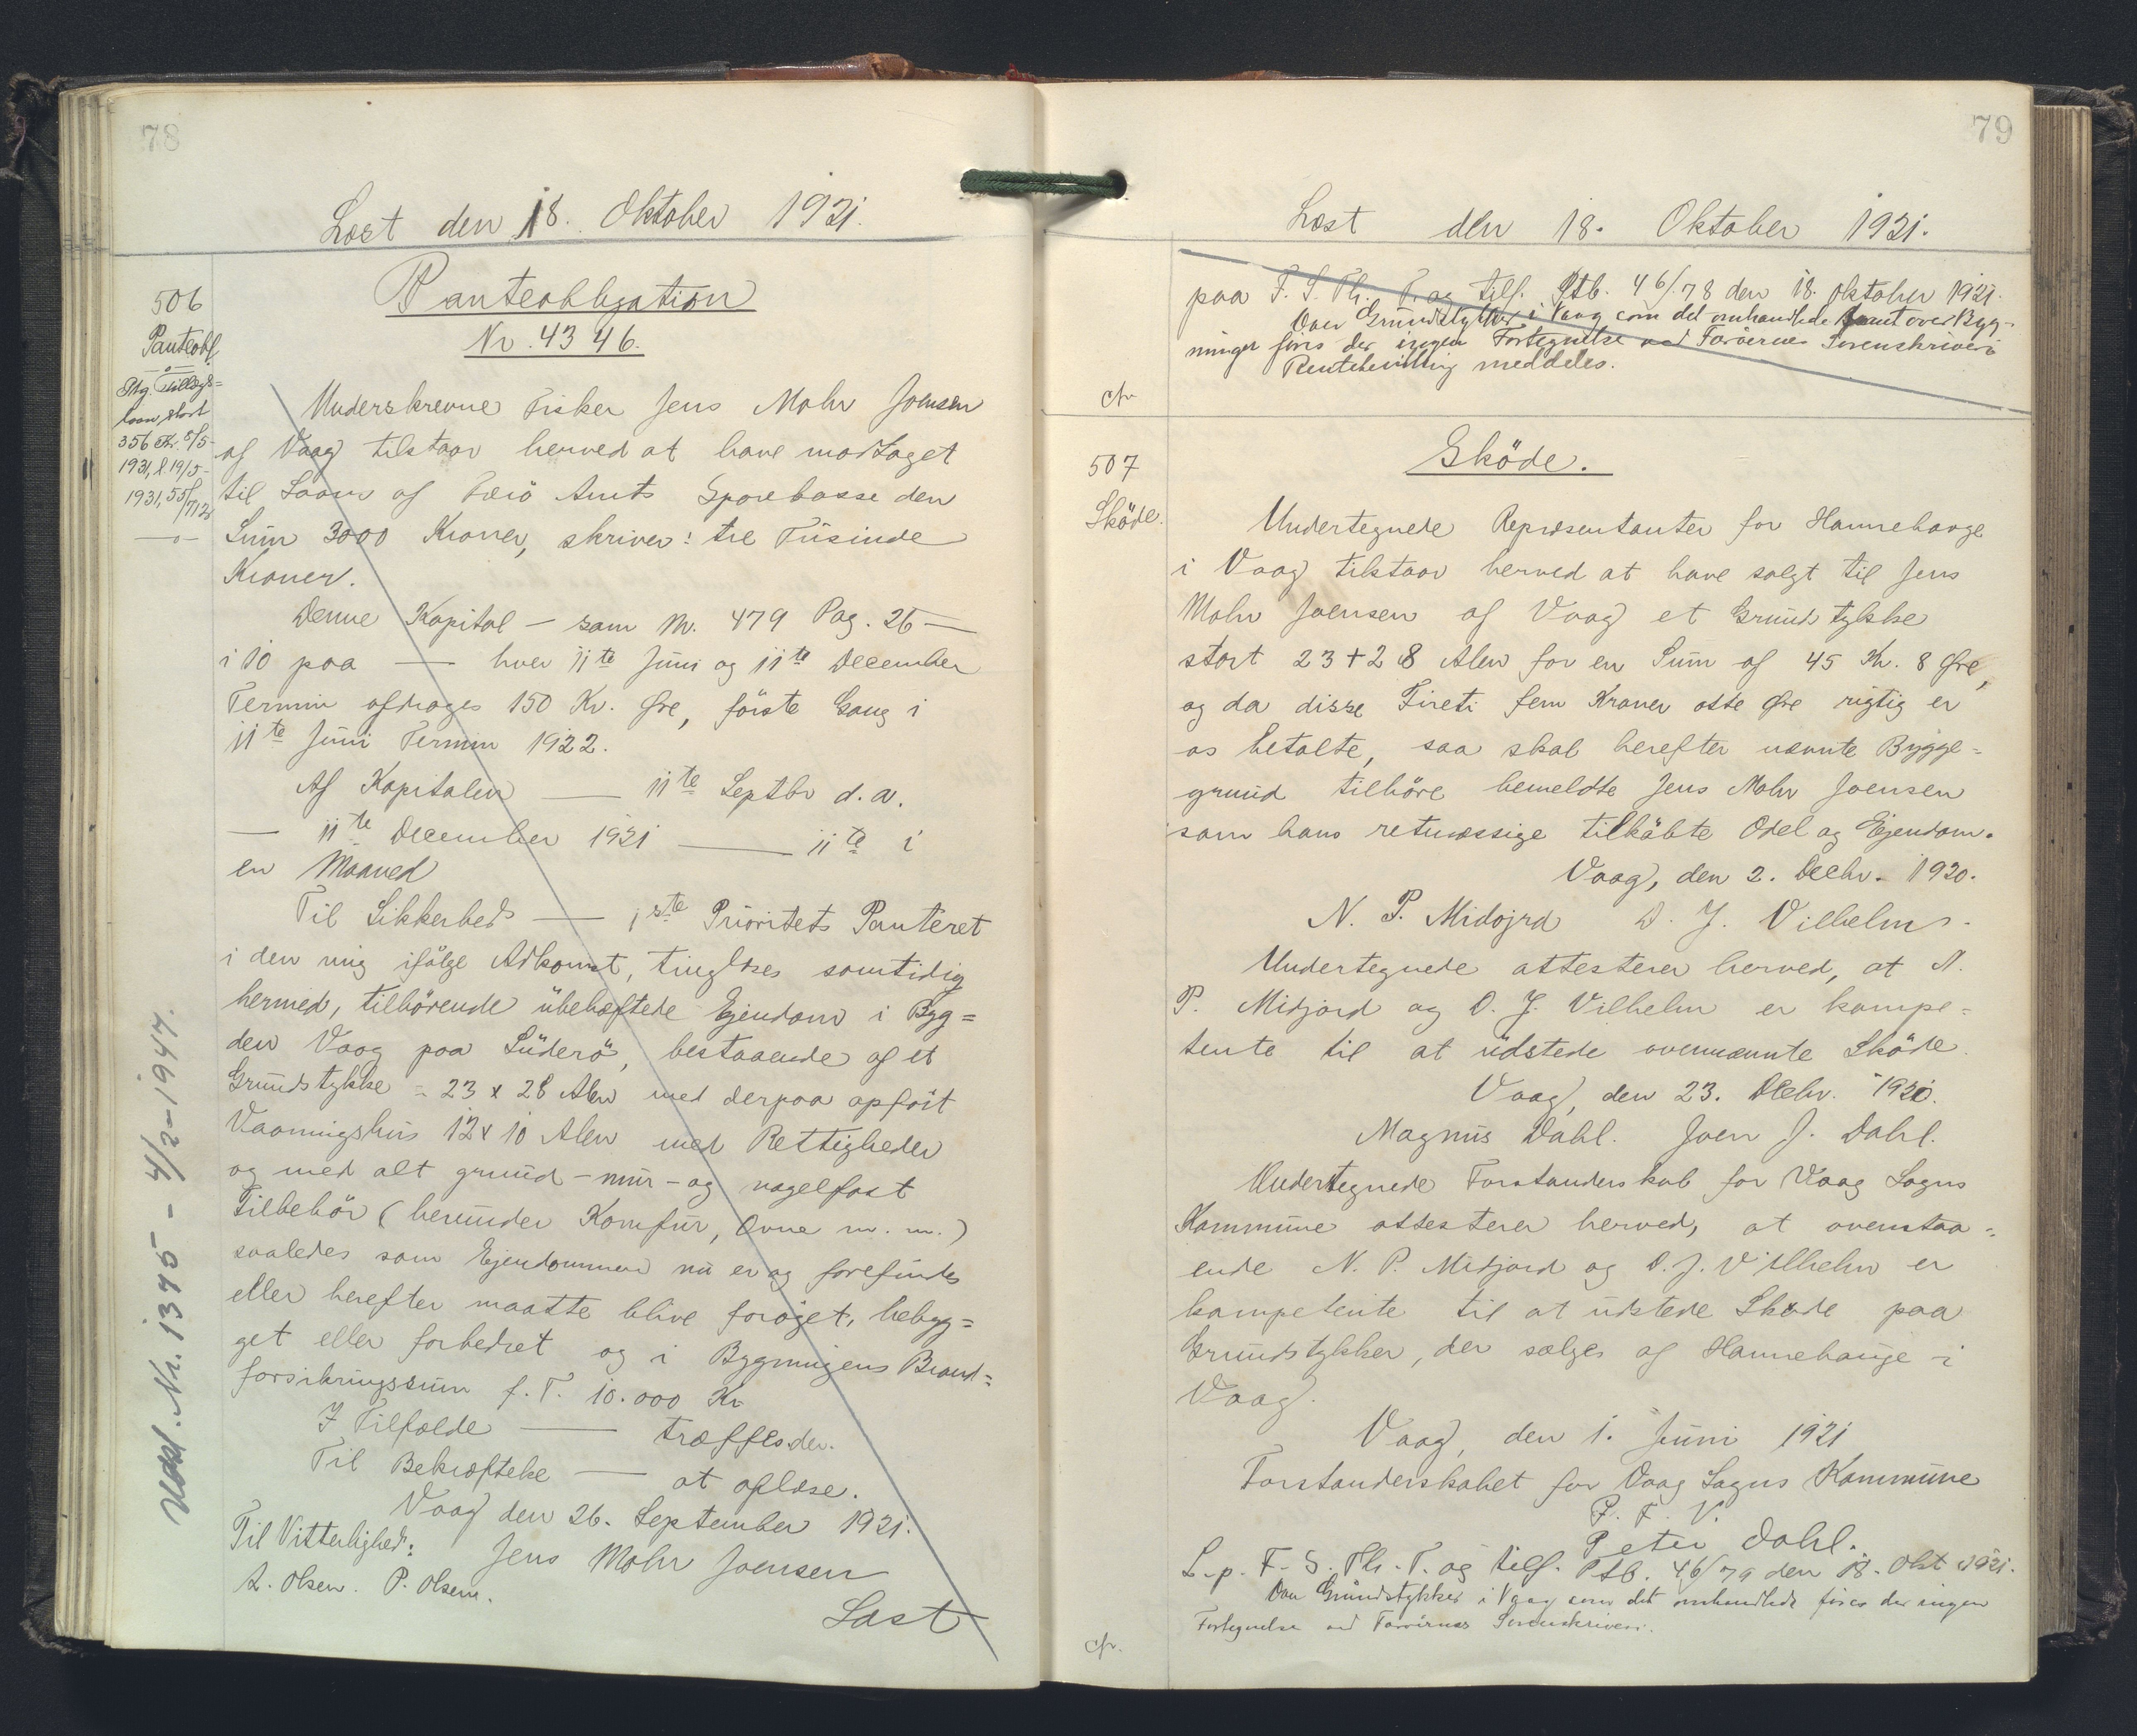 78
Læst den 18. Oktober 1921.
506
Panteobl.
Ptg. Tillægs=
laan, stort
356 Kr. 8/5-
1931, l 19/5-
1931, 55/712
Udsl. Nr. 1375 - 4/2-1947.
Panteobligation
Nr. 4346.
Underskrevne Fisker Jens Mohr Joensen
af Vaag tilstaar herved at have modtaget
til Laans af Færö Amts Sparekasse den
Sum 3000 Kroner, skriver: tre Tusinde
Kroner.
Denne Kapital — som Nr. 479 Pag. 26 —
i 10 paa — hver 11te Juni og 11te December
Termin afdrages 150 Kr. Øre, förste Gang i
11te Juni Termin 1922.
Af Kapitalen — 11te Septbr d. a.
— 11te December 1921 — 11te i
en Maaned
Til Sikkerhed — 1ste Prioritets Panteret
i den mig ifölge Adkomst, tinglæses samtidig
hermed, tilhörende übehæftede Ejendom i Byg=
den Vaag paa Süderö, bestaaende af et
Grundstykke = 23 x 28 Alen med derpaa opfört
Vaaningshus 12 x 10 Alen med Rettigheder
og med alt grund - mur - og nagelfast
Tilbehör (herunder Komfur, Ovne m. m.)
saaledes som Ejendommen nu er og forefindes
eller herefter maatte blive foröget, bebyg=
get eller forbedret og i Bygningens Brand=
forsikringssum f. T. 10.000 Kr.
I Tilfælde — træffes der.
Til Bekræftelse — at aflæse.
Vaag den 26. September 1921.
Til Vitterlighed: Jens Mohr Joensen
A. Olsen. P. Olsen.
Læst
79
Læst den 18. Oktober 1921.
paa F. S. Th. T. og tilf. Ptb. 46/78 den 18. Oktober 1921.
Over Grundstykker i Vaag som det omhandlede samt over Byg-
ninger föres der ingen Fortegnelse ved Færöernes Sorenskriveri
Rentebevilling meddeles.
cfr
507
Sköde.
Sköde.
Undertegnede Repræsentanter for Hannehauge
i Vaag tilstaar herved at have solgt til Jens
Mohr Joensen af Vaag et Grundstykke
stort 23 + 28 Alen for en Sum af 45 Kr. 8 Øre,
og da disse Fireti fem Kroner otte Øre rigtig er
os betalte, saa skal herefter nævnte Bygge=
grund tilhöre bemeldte Jens Mohr Joensen
som hans retmæssige tilköbte Odel og Ejendom.
Vaag, den 2. Decbr. 1920.
N. P. Midjord D. J. Vilhelm
Undertegnede attesterer herved, at N.
P. Midjord og D. J. Vilhelm er kompe=
tente til at udstede ovennævnte Sköde.
Vaag, den 23. Decbr. 1920.
Magnus Dahl. Joen J. Dahl.
Undertegnede Forstanderskab for Vaag Sogns
Kommune attesterer herved, at ovenstaa=
ende N. P. Midjord og D. J. Vilhelm er
kompetente til at udstede Sköde paa
Grundstykker, der sælges af Hannehauge i
Vaag.
Vaag, den 1. Juni 1921
Forstanderskabet for Vaag Sogns Kommune
P. F. V.
Peter Dahl.
L. p. F. S. Th. T. og tilf. Ptb. 46/79 den 18. Okt 1921.
Over Grundstykker i Vaag som det omhandlede föres der ingen
Fortegnelse ved Færöernes Sorenskriveri.
cfr.